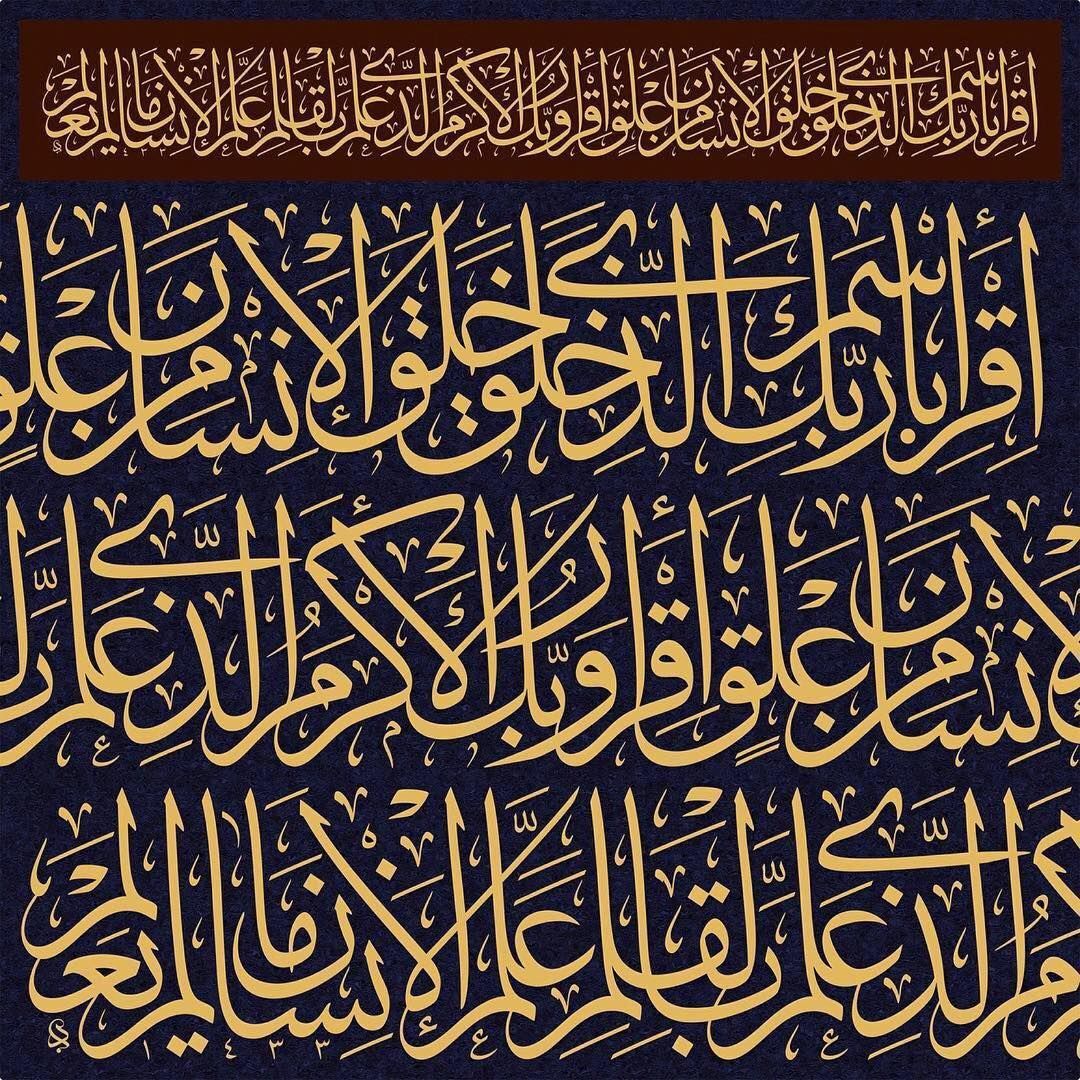 اقرأ باسم ربك الذي خلق خلق الإنسان من علق اقرأ وربك الأكرم الذي علم بالقلم علم الإنسان ما لم يعلم
اقرأ باسم ربك الذي خلق خلق الإنسان من علق
الإنسان من علق اقرأ وربك الأكرم الذي علم
الأكرم الذي علم بالقلم علم الإنسان ما لم يعلم
١٤٣٣